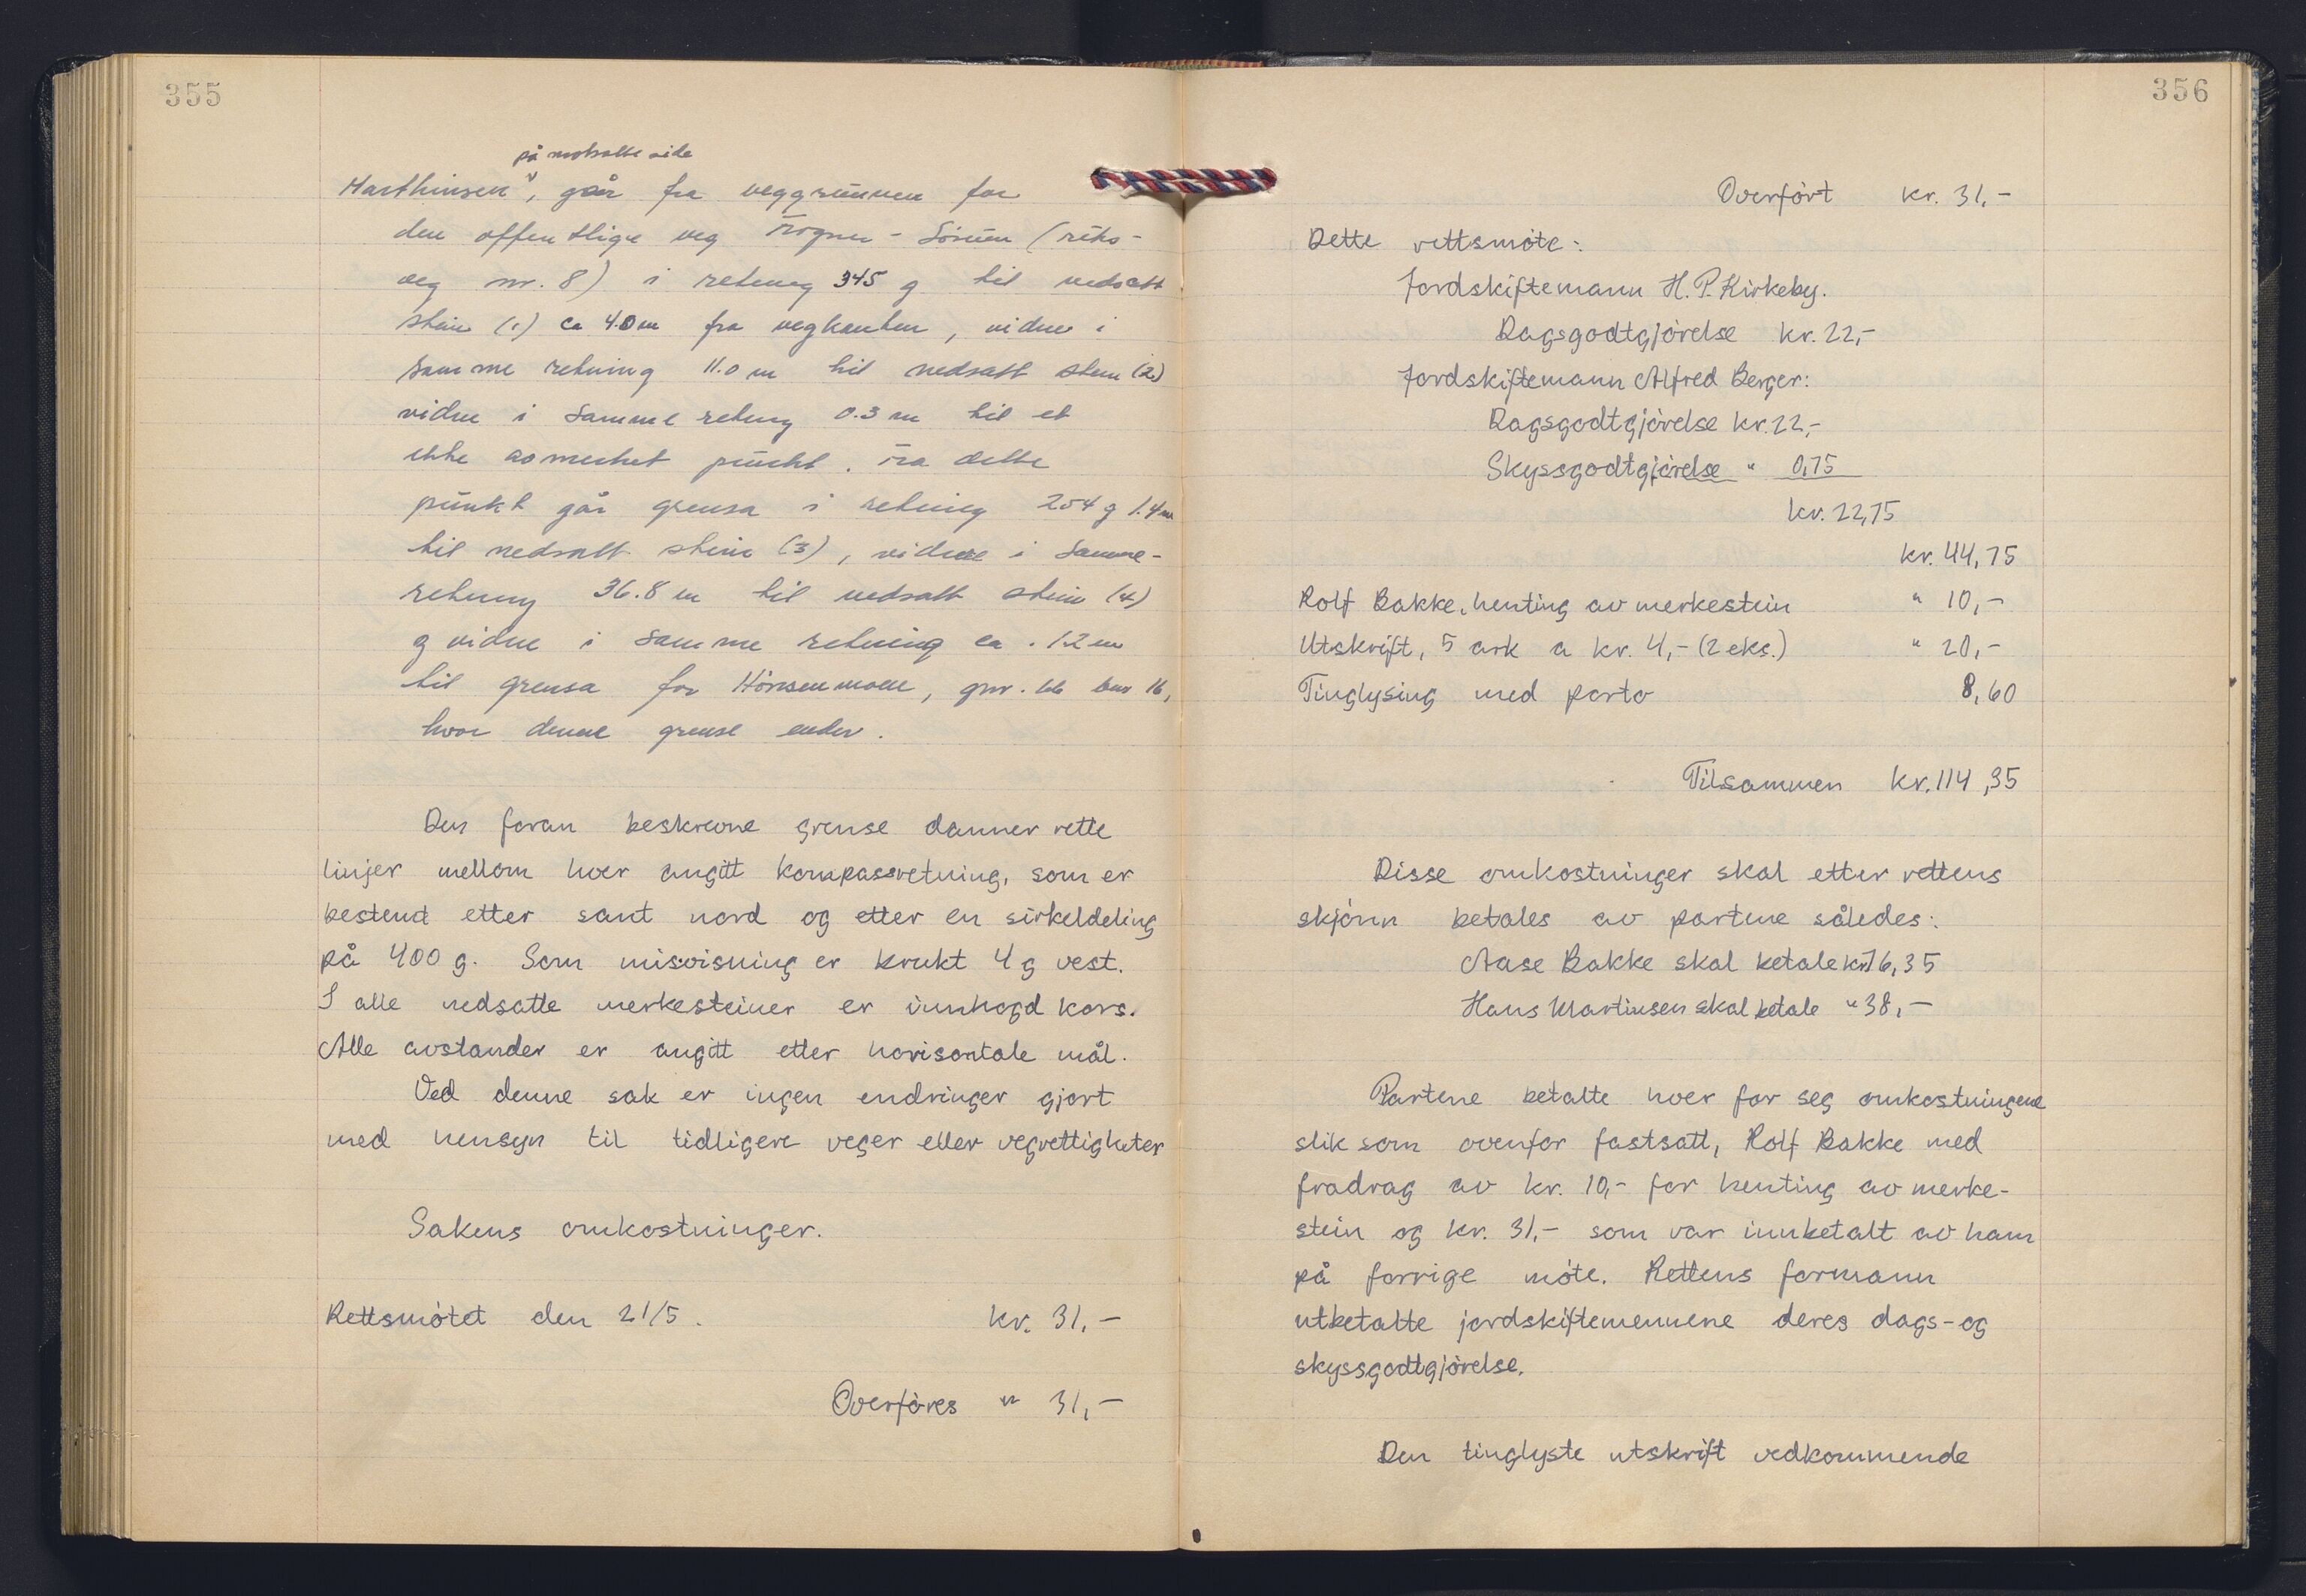 355
på motsatte side
Marthinsen", går fra veggrunnen for
den offentlige veg Frogner - Sörum (riks-
veg nr. 8) i retning 345 g til nedsatt
stein (1) ca 4.0 m fra vegkanten, videre i
samme retning 11.0 m til nedsatt stein (2)
videre i samme retning 0.3 m til et
ikke avmerket punkt. Fra dette
punkt går grensa i retning 254 g 1.4 m
til nedsatt stein (3), videre i samme-
retning 36.8 m til nedsatt stein (4)
g videre i samme retning ca. 12 m
til grensa for Hönsenmoen, gnr. 66 bnr 16,
hvor denne grense ender.
Den foran beskrevne grense danner rette
linjer mellom hver angitt kompassretning, som er
bestemt etter sant nord og etter en sirkeldeling
på 400 g. Som misvisning er brukt 4 g vest.
I alle nedsatte merkesteiner er innhogd kors.
Alle avstander er angitt etter horisontale mål.
Ved denne sak er ingen endringer gjort
med hensyn til tidligere veger eller vegrettigheter
Sakens omkostninger.
Rettsmötet den 21/5. kr. 31,-
Overföres " 31,-
356
Overfört kr. 31,-
Dette rettsmöte:
Jordskiftemann H. P. Kirkeby.
Dagsgodtgjörelse kr. 22,-
Jordskiftemann Alfred Berger:
Dagsgodtgjörelse kr. 22,-
Skyssgodtgjörelse " 0,75
kr. 22,75
kr. 44,75
Rolf Bakke, henting av merkestein " 10,-
Utskrift, 5 ark a kr. 4,- (2 eks.) " 20,-
Tinglysing med porto 8,60
Tilsammen kr. 114,35
Disse omkostninger skal etter rettens
skjönn betales av partene således:
Aase Bakke skal betale kr 76,35
Hans Martinsen skal betale " 38,-
Partene betalte hver for seg omkostningene
slik som ovenfor fastsatt, Rolf Bakke med
fradrag av kr. 10,- for henting av merke-
stein og kr. 31,- som var innbetalt av ham
på forrige möte. Rettens formann
utbetalte jordskiftemennene deres dags- og
skyssgodtgjörelse.
Den tinglyste utskrift vedkommende